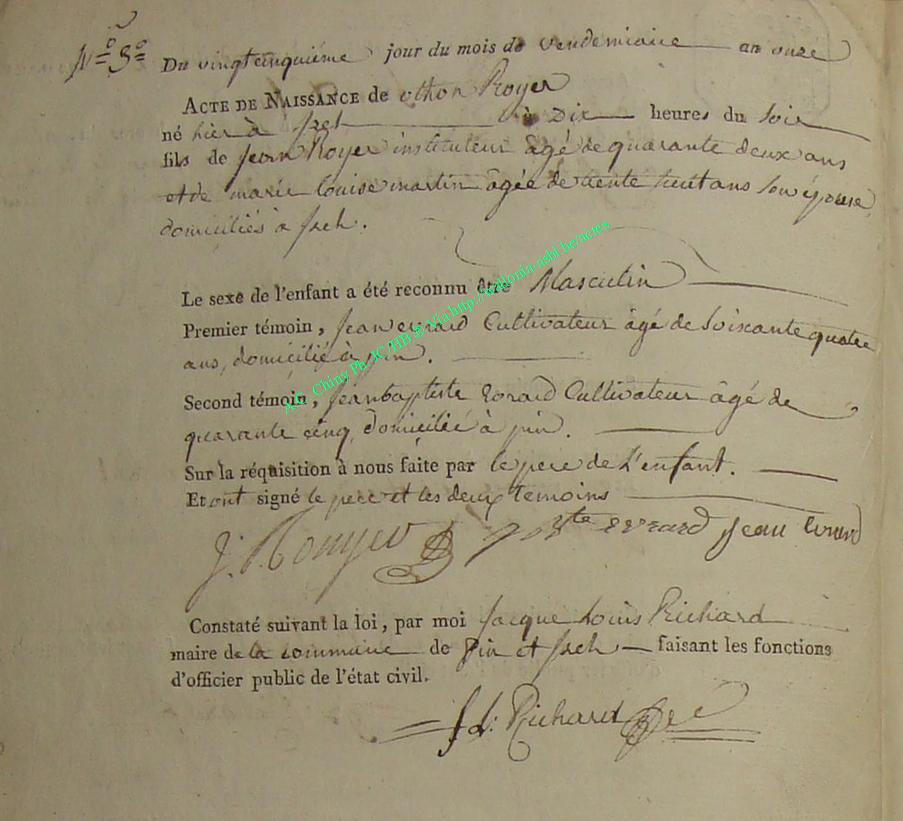 N° 3°
Du vingtcinquiéme jour du mois de vendemiaire an onze
ACTE DE NAISSANCE de othon Royer
né hier à Izel à Dix heures du soir
fils de jean Royer instituteur âgé de quarante deux ans
et de marie louise martin âgée de trente huit ans son épouse
domiciliés à Izel.
Le sexe de l'enfant a été reconnu être Masculin
Premier témoin, jean evrard Cultivateur âgé de soixante quatre
ans, domicilié à pin.
Second témoin, jeanbaptiste Evrard Cultivateur âgé de
quarante cinq, domiciliée à pin.
Sur la réquisition à nous faite par le pere de l'enfant.
Et ont signé le pere et les deux temoins
J. Rouyer J Bte evrard jean Evrard
Constaté suivant la loi, par moi Jacque Louis Richard
maire de la commune de Pin et Izel faisant les fonctions
d'officier public de l'état civil.
J L: Richard
Chiny via http://
.be/actes